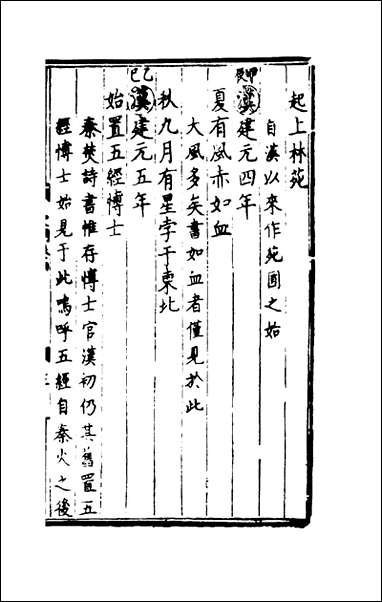 起上林苑
自漢以來作苑囿之始
甲辰
漢建元四年
夏有風赤如血
大風多矣書如血者僅見於此
秋九月有星孛于東北
乙巳
漢建元五年
始置五經博士
秦焚詩書惟存博士官漢初仍其舊置五
經博士始見于此嗚呼五經自秦火之後